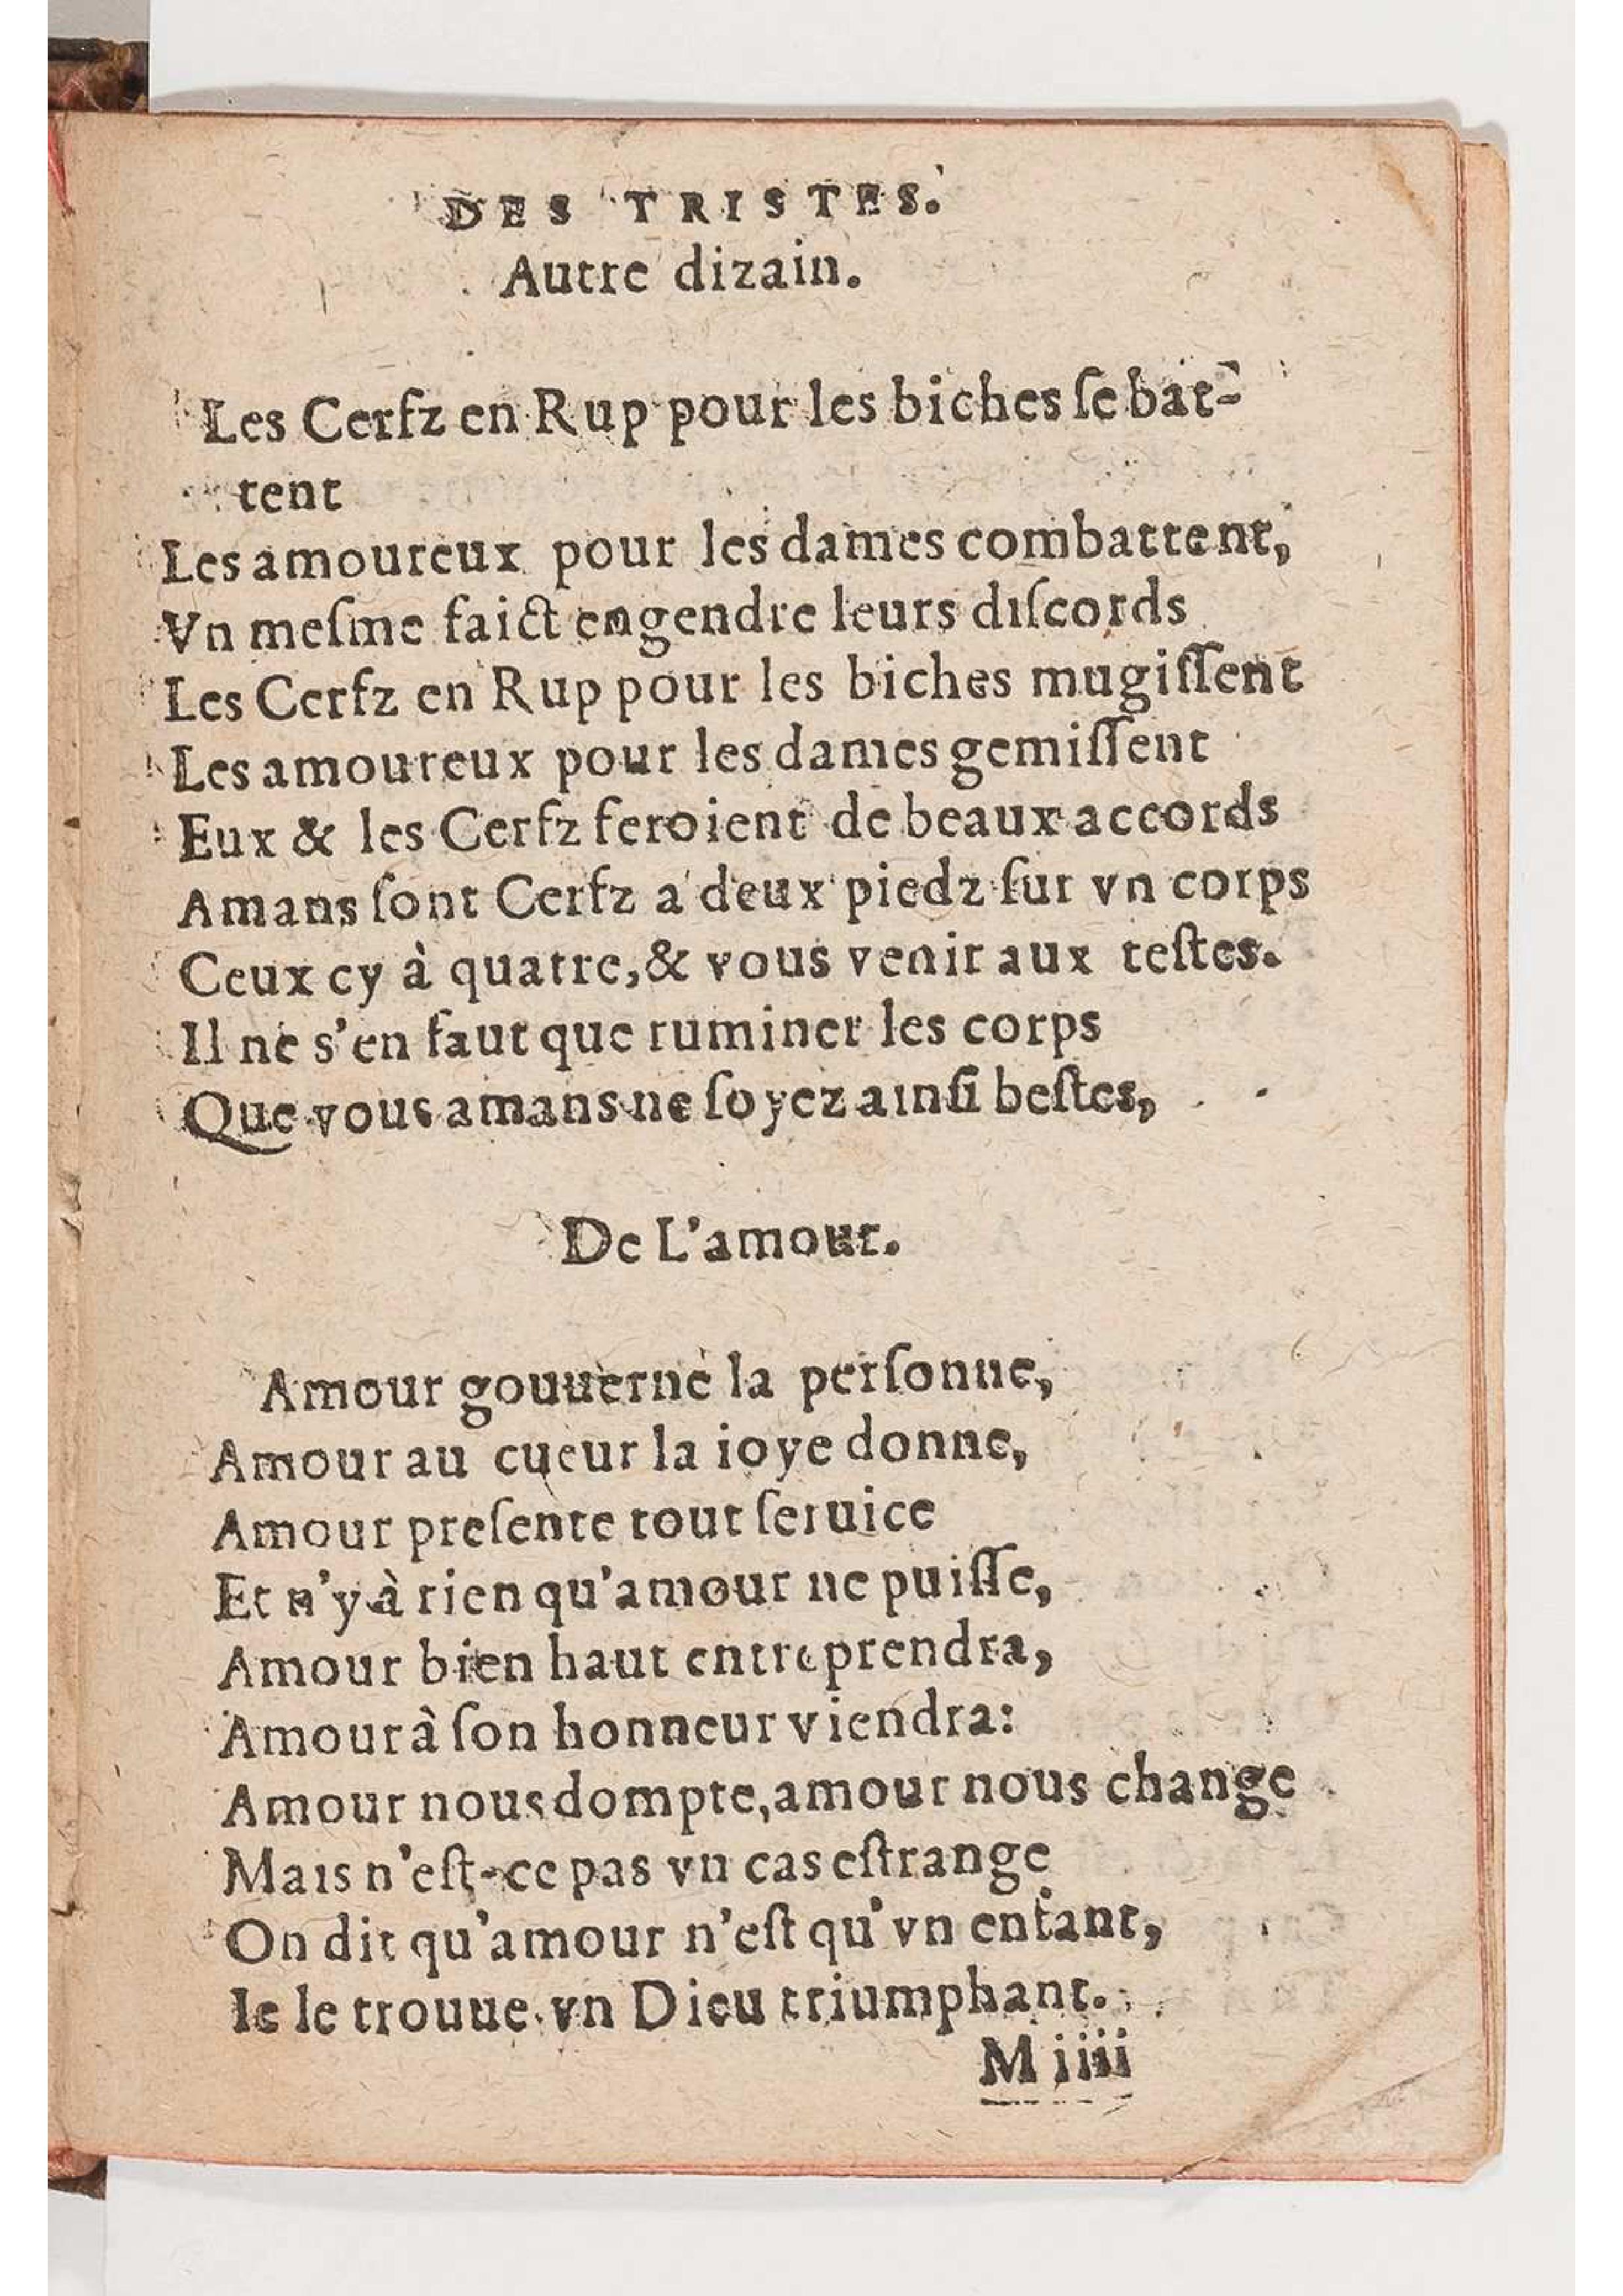 DES TRISTES.
Autre dizain.
Les Cerfz en Rup pour les biches ſe bat-
tent
Les amoureux pour les dames combattent,
Vn meſme faict engendre leurs diſcords
Les Cerfz en Rup pour les biches mugiſſent
Les amoureux pour les dames gemiſſent
Eux & les Cerfz feroient de beaux accords
Amans ſont Cerfz a deux piedz ſur vn corps
Ceux cy à quatre, & vous venir aux teſtes.
Il ne s'en faut que ruminer les corps
Que vous amans ne ſoyez ainſi beſtes,
De L'amour.
Amour gouuerne la perſonne,
Amour au cueur la ioye donne,
Amour preſente tout ſeruice
Et n'y à rien qu'amour ne puiſſe,
Amour bien haut entreprendra,
Amour à ſon honneur viendra:
Amour nous dompte, amour nous change
Mais n'eſt-ce pas vn cas eſtrange
On dit qu'amour n'eſt qu'vn enfant,
Ie le trouue vn Dieu triumphant.
M iiii